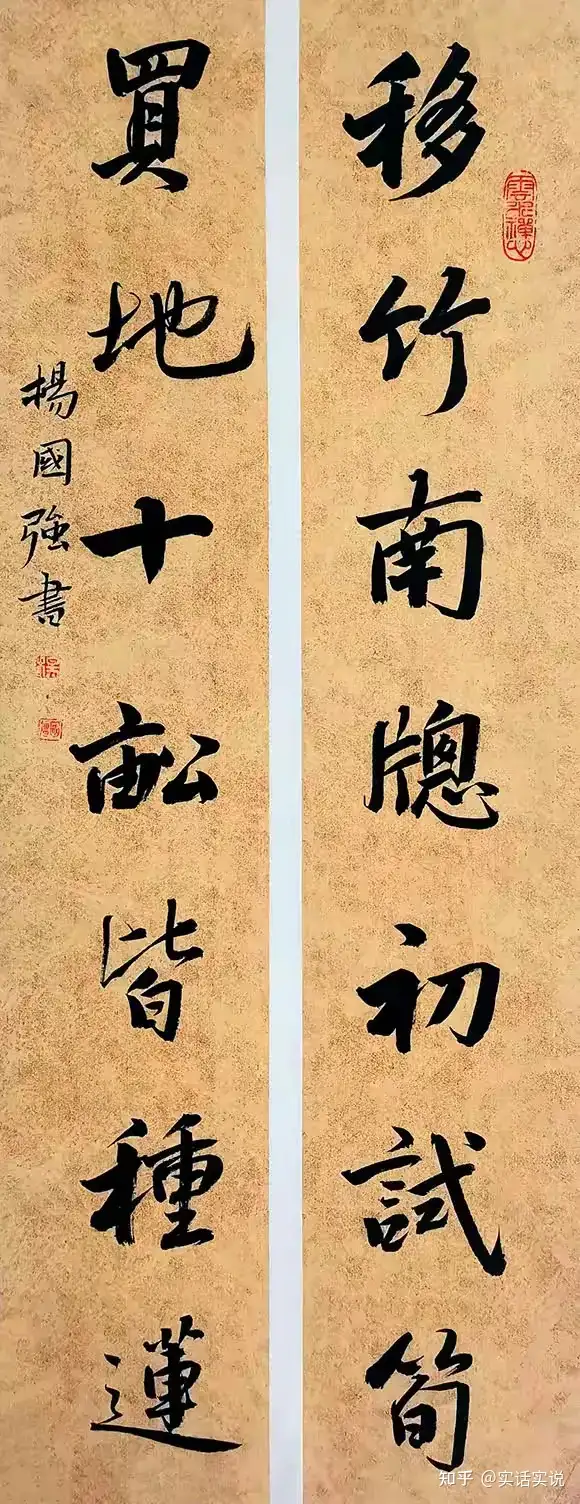 移竹南牕初試筍
買地十畝皆種蓮
楊國強書
知乎 @实话实说